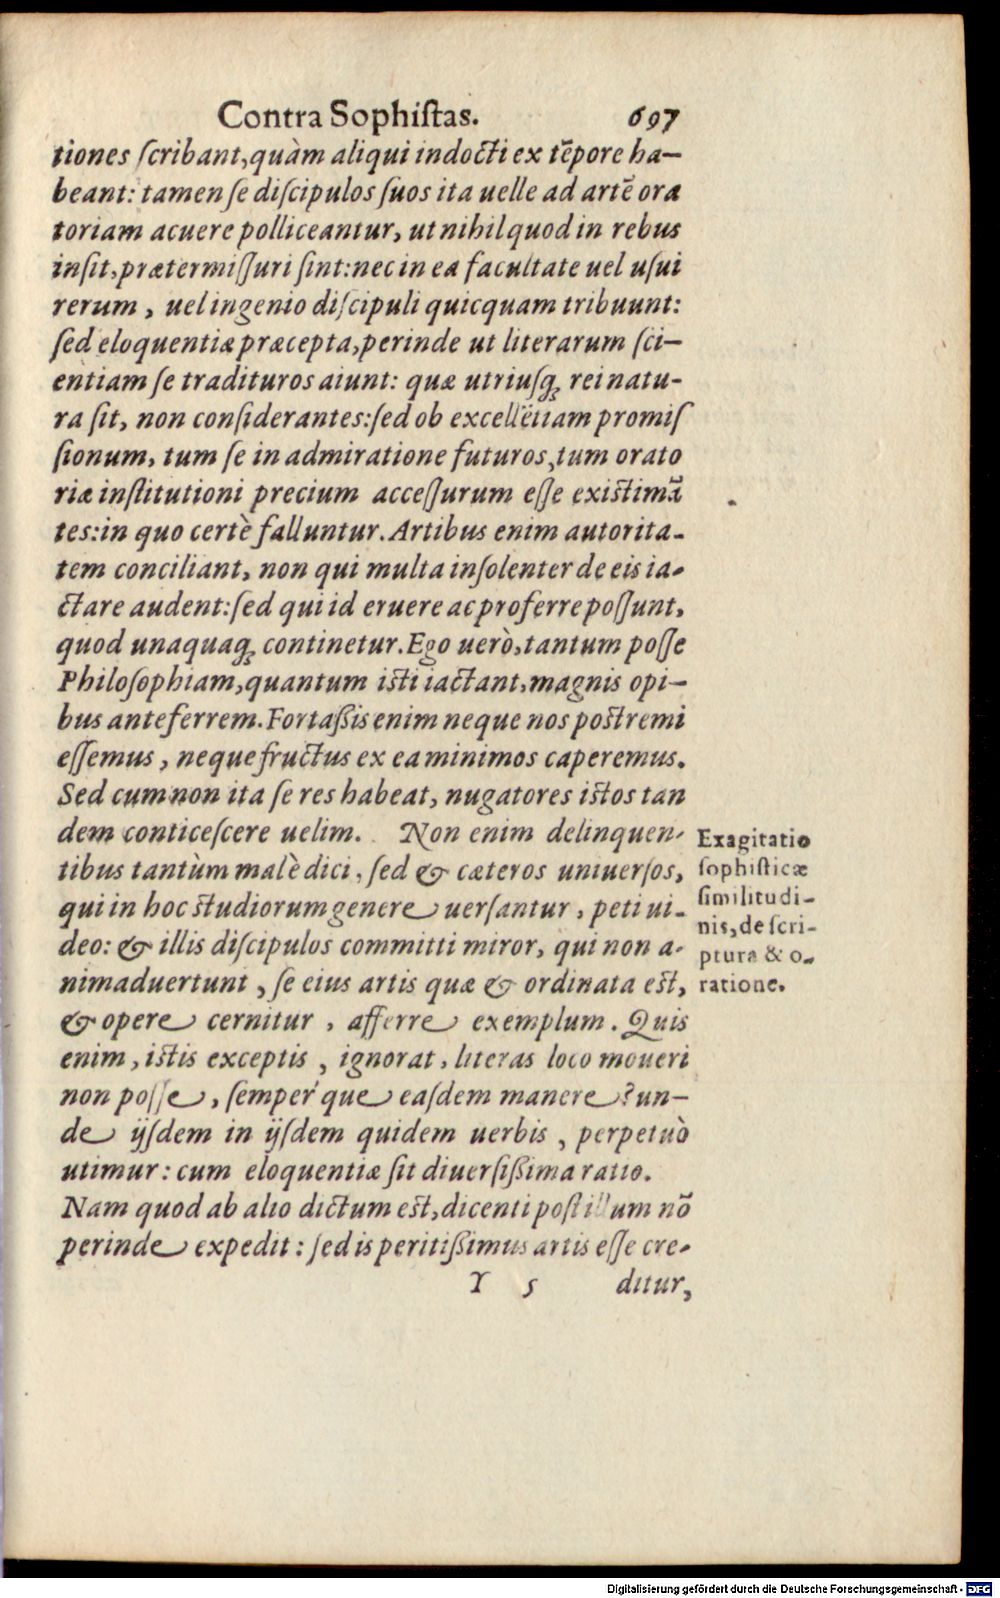 Contra Sophiſtas. 697
tiones ſcribant, quàm aliqui indocti ex tẽpore ha-
beant: tamen ſe diſcipulos ſuos ita uelle ad artẽ ora
toriam acuere polliceantur, ut nihil quod in rebus
inſit, prætermiſſuri ſint: nec in ea facultate uel uſui
rerum, uel ingenio diſcipuli quicquam tribuunt:
ſed eloquentiæ præcepta, perinde ut literarum ſci-
entiam ſe tradituros aiunt: quæ utriuſq́; rei natu-
ra ſit, non conſiderantes: ſed ob excellẽtiam promiſ
ſionum, tum ſe in admiratione futuros, tum orato
riæ inſtitutioni precium acceſſurum eſſe existimã
tes: in quo certè falluntur. Artibus enim autorita-
tem conciliant, non qui multa inſolenter de eis ia-
ctare audent: ſed qui id eruere ac proferre poſſunt,
quod unaquaq; continetur. Ego uerò, tantum poſſe
Philoſophiam, quantum isti iactant, magnis opi-
bus anteferrem. Fortaßis enim neque nos postremi
eſſemus, neque fructus ex ea minimos caperemus.
Sed cum non ita ſe res habeat, nugatores istos tan
dem conticeſcere uelim. Non enim delinquen-
tibus tantùm malè dici, ſed & cæteros uniuerſos,
qui in hoc studiorum genere uerſantur, peti ui-
deo: & illis diſcipulos committi miror, qui non a-
nimaduertunt, ſe eius artis quæ & ordinata est,
& opere cernitur, afferre exemplum. Quis
enim, istis exceptis, ignorat, literas loco moueri
non poſſe, ſemper'que eaſdem manere? un-
de ijſdem in ijſdem quidem uerbis, perpetuò
utimur: cum eloquentiæ ſit diuerſißima ratio.
Nam quod ab alio dictum est, dicenti poſt illum nõ
perinde expedit: ſed is peritißimus artis eſſe cre-
Y 5 ditur,
Exagitatio
ſophiſticæ
ſimilitudi-
nis, de ſcri-
ptura & o-
ratione.
Digitalisierung gefördert durch die Deutsche Forschungsgemeinschaft - DFG